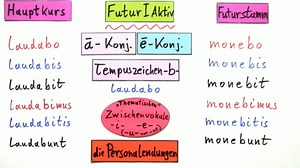 Hauptkurs
Futur I Aktiv
Futurstamm
ā-Konj.
ē-Konj.
Tempuszeichen -b-
laudabo
laudabis
laudabit
laudabimus
laudabitis
laudabunt
laudabo
"Thematische"
Zwischenvokale
-i- -e-
(-u- -o-)
die Personalendungen
monebo
monebis
monebit
monebimus
monebitis
monebunt